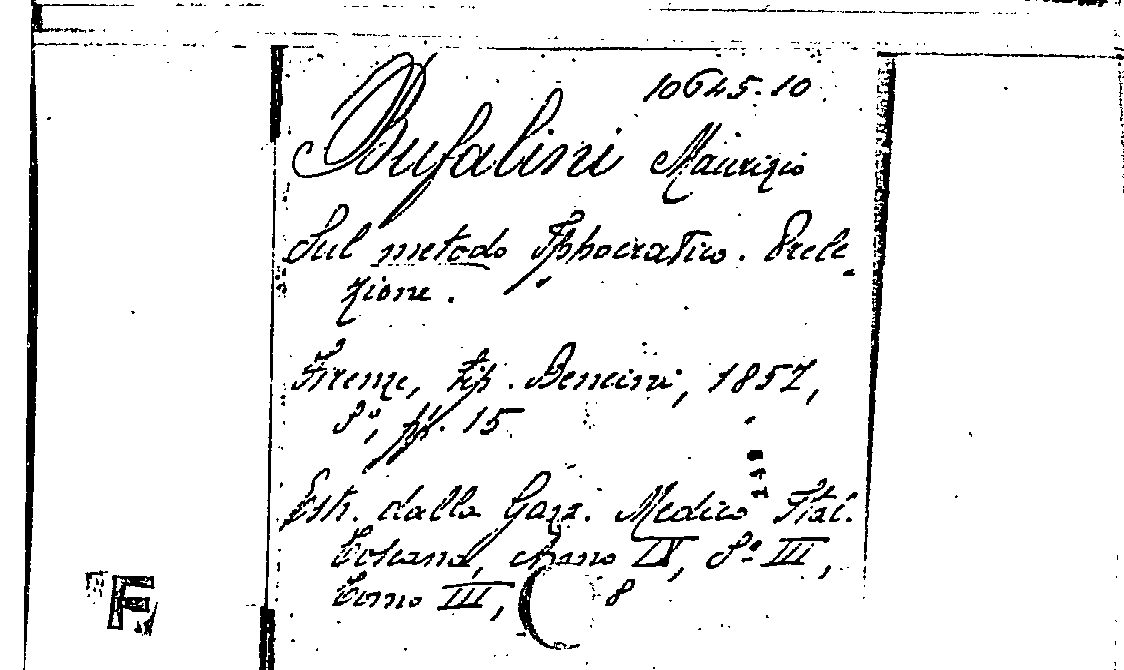 10645.10
Bufalini Maurizio
Sul metodo Ippocratico. Prele-
zione.
Firenze, tip. Bencini, 1857,
8º, pp. 15
Estr. dalla Gazz. Medica Ital.
Toscana, Anno IX, Sª III,
Tomo III, 8
F